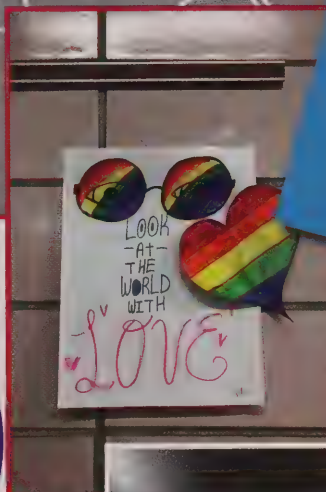 LOOK
-At-
THE
WORLD
WITH
LOVE